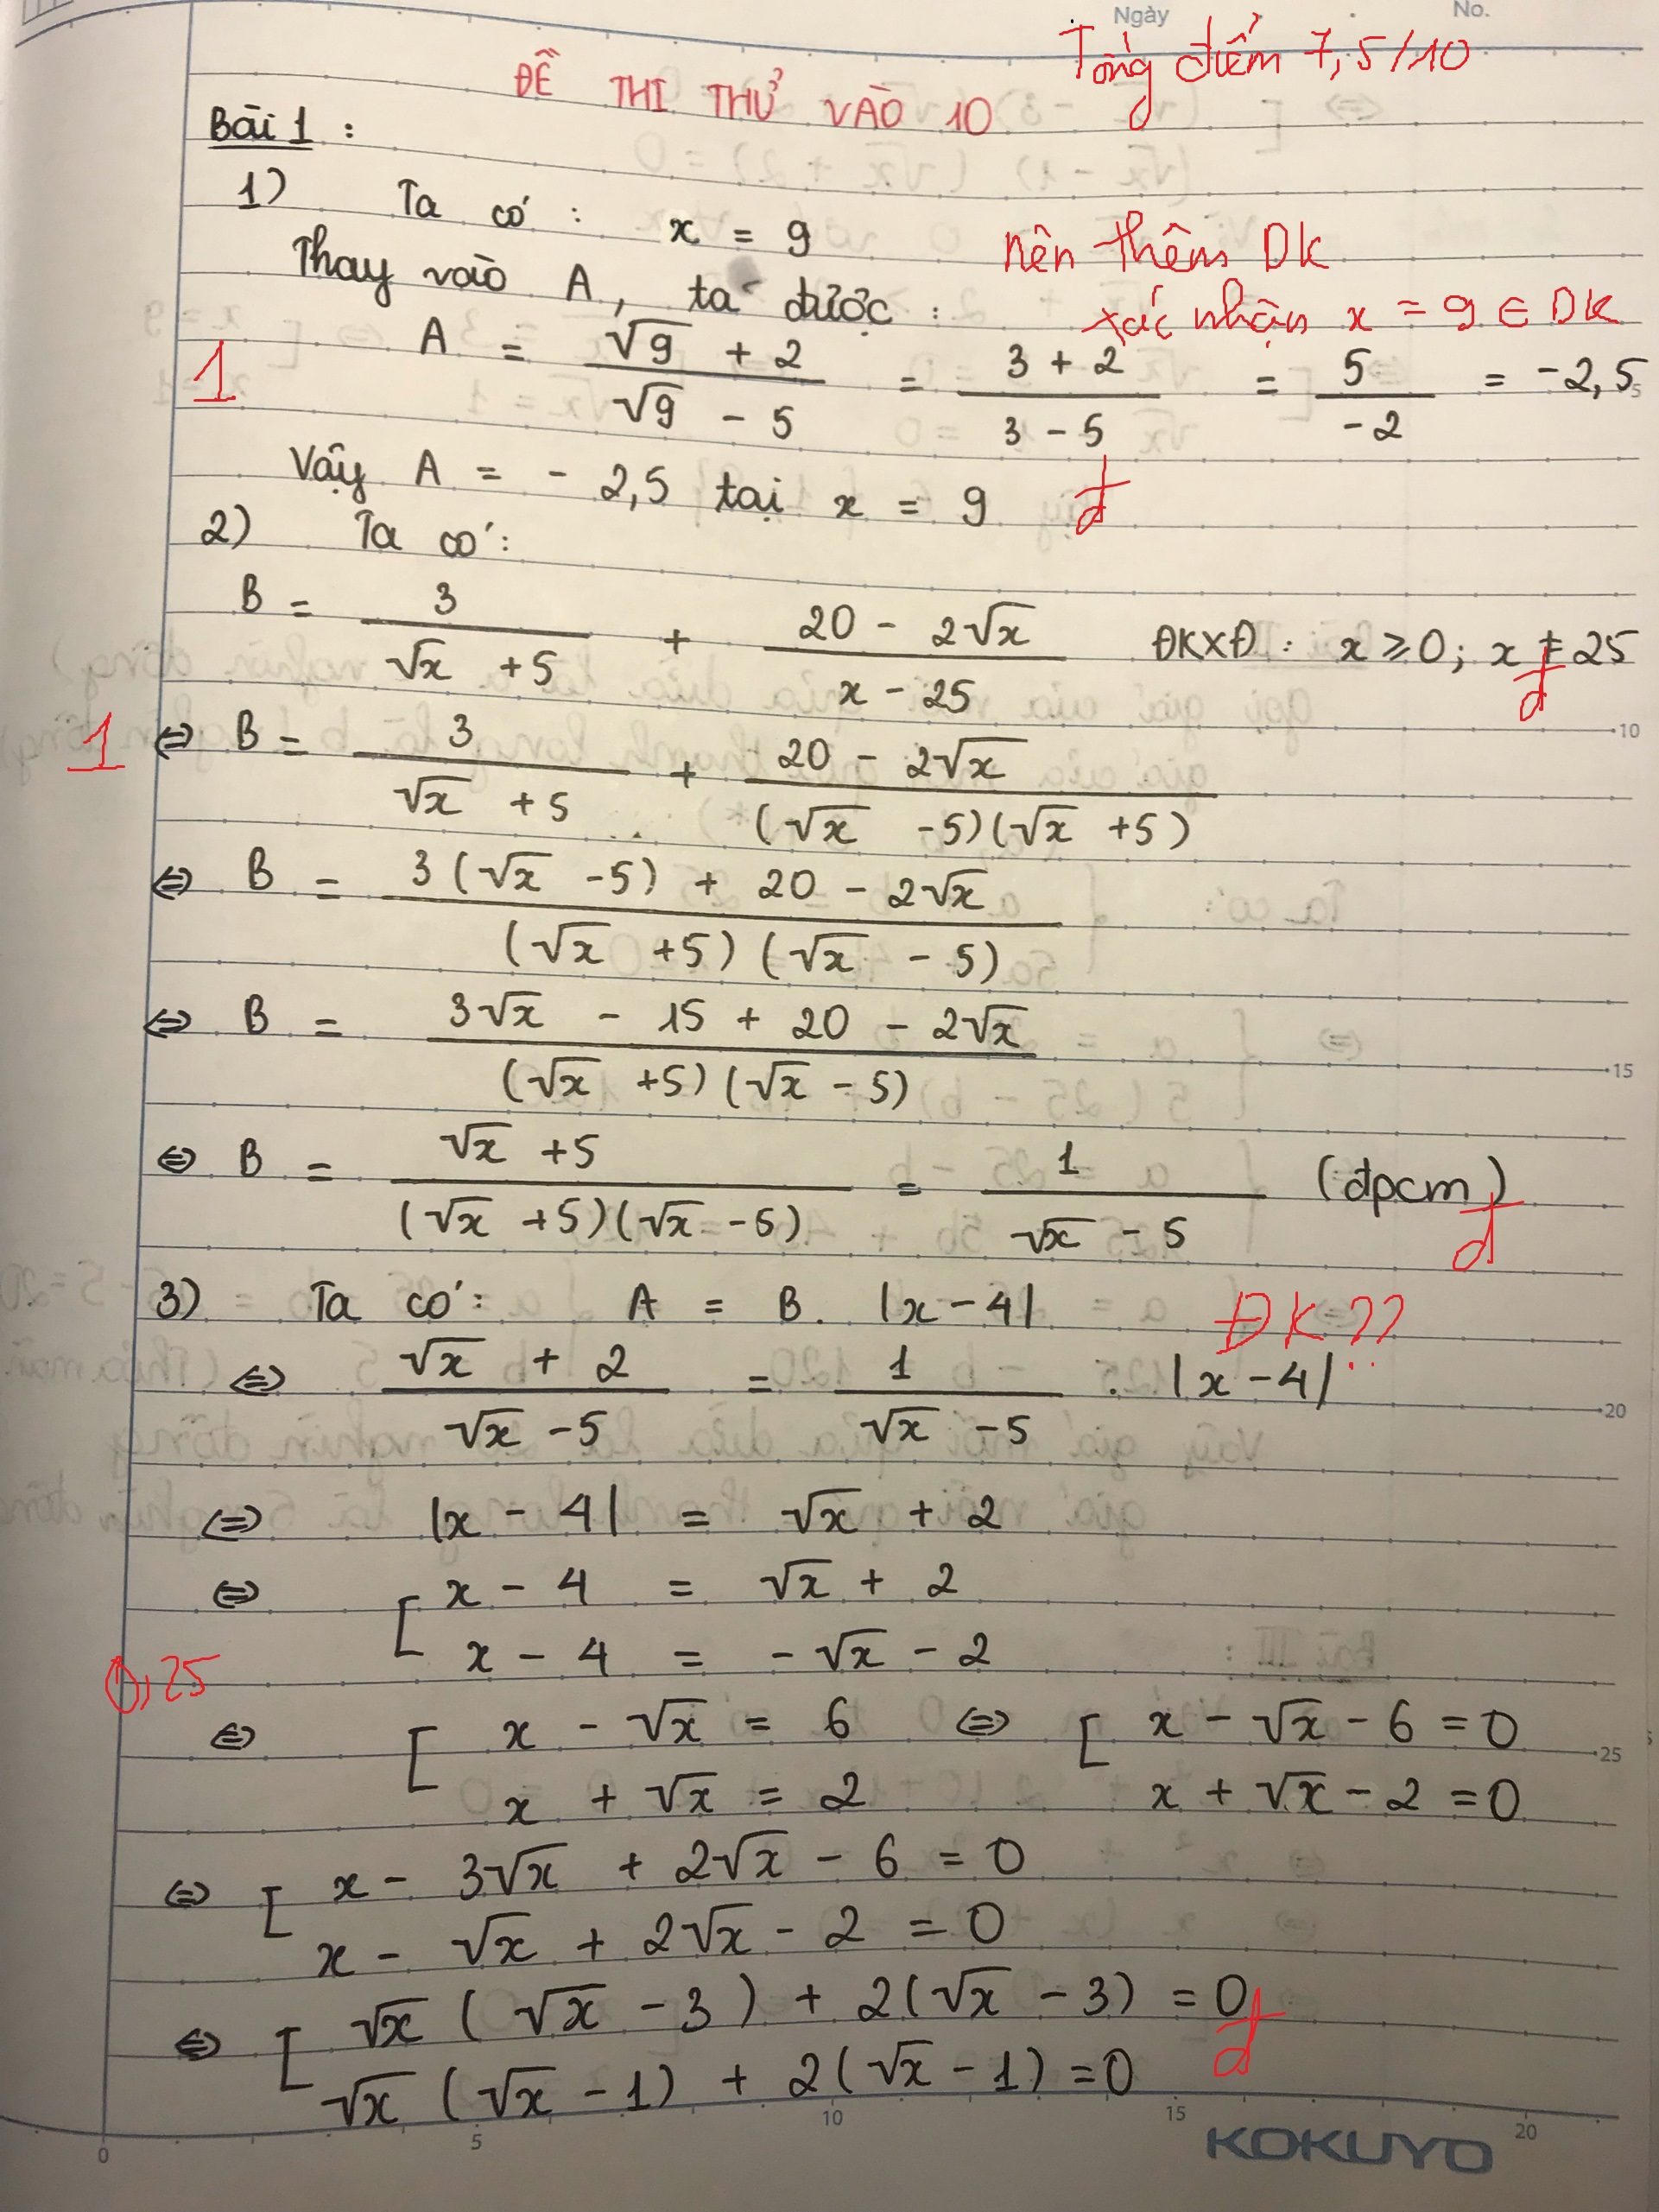 Ngày No.
Tổng điểm 7,5/10
ĐỀ THI THỬ VÀO 10
Bài 1 :
1) Ta có : x = 9
nên thêm ĐK
Thay vào A, ta được :
xác nhận x = 9 ∈ ĐK
1 A = (√9 + 2)/(√9 - 5) = (3 + 2)/(3 - 5) = 5/(-2) = -2,5
Vậy A = - 2,5 tại x = 9 đ
2) Ta có :
B = 3/(√x + 5) + (20 - 2√x)/(x - 25) ĐKXĐ : x ≥ 0 ; x ≠ 25 đ
1 ⇔ B = 3/(√x + 5) + (20 - 2√x)/((√x - 5)(√x + 5))
⇔ B = (3(√x - 5) + 20 - 2√x)/((√x + 5)(√x - 5))
⇔ B = (3√x - 15 + 20 - 2√x)/((√x + 5)(√x - 5))
⇔ B = (√x + 5)/((√x + 5)(√x - 5)) = 1/(√x - 5) (đpcm) đ
3) Ta có : A = B . |x - 4| ĐK ??
⇔ (√x + 2)/(√x - 5) = 1/(√x - 5) . |x - 4|
⇔ |x - 4| = √x + 2
⇔ [ x - 4 = √x + 2
x - 4 = - √x - 2
0,25
⇔ [ x - √x = 6 ⇔ [ x - √x - 6 = 0
x + √x = 2 x + √x - 2 = 0
⇔ [ x - 3√x + 2√x - 6 = 0
x - √x + 2√x - 2 = 0
⇔ [ √x (√x - 3) + 2(√x - 3) = 0 đ
√x (√x - 1) + 2(√x - 1) = 0
KOKUYO